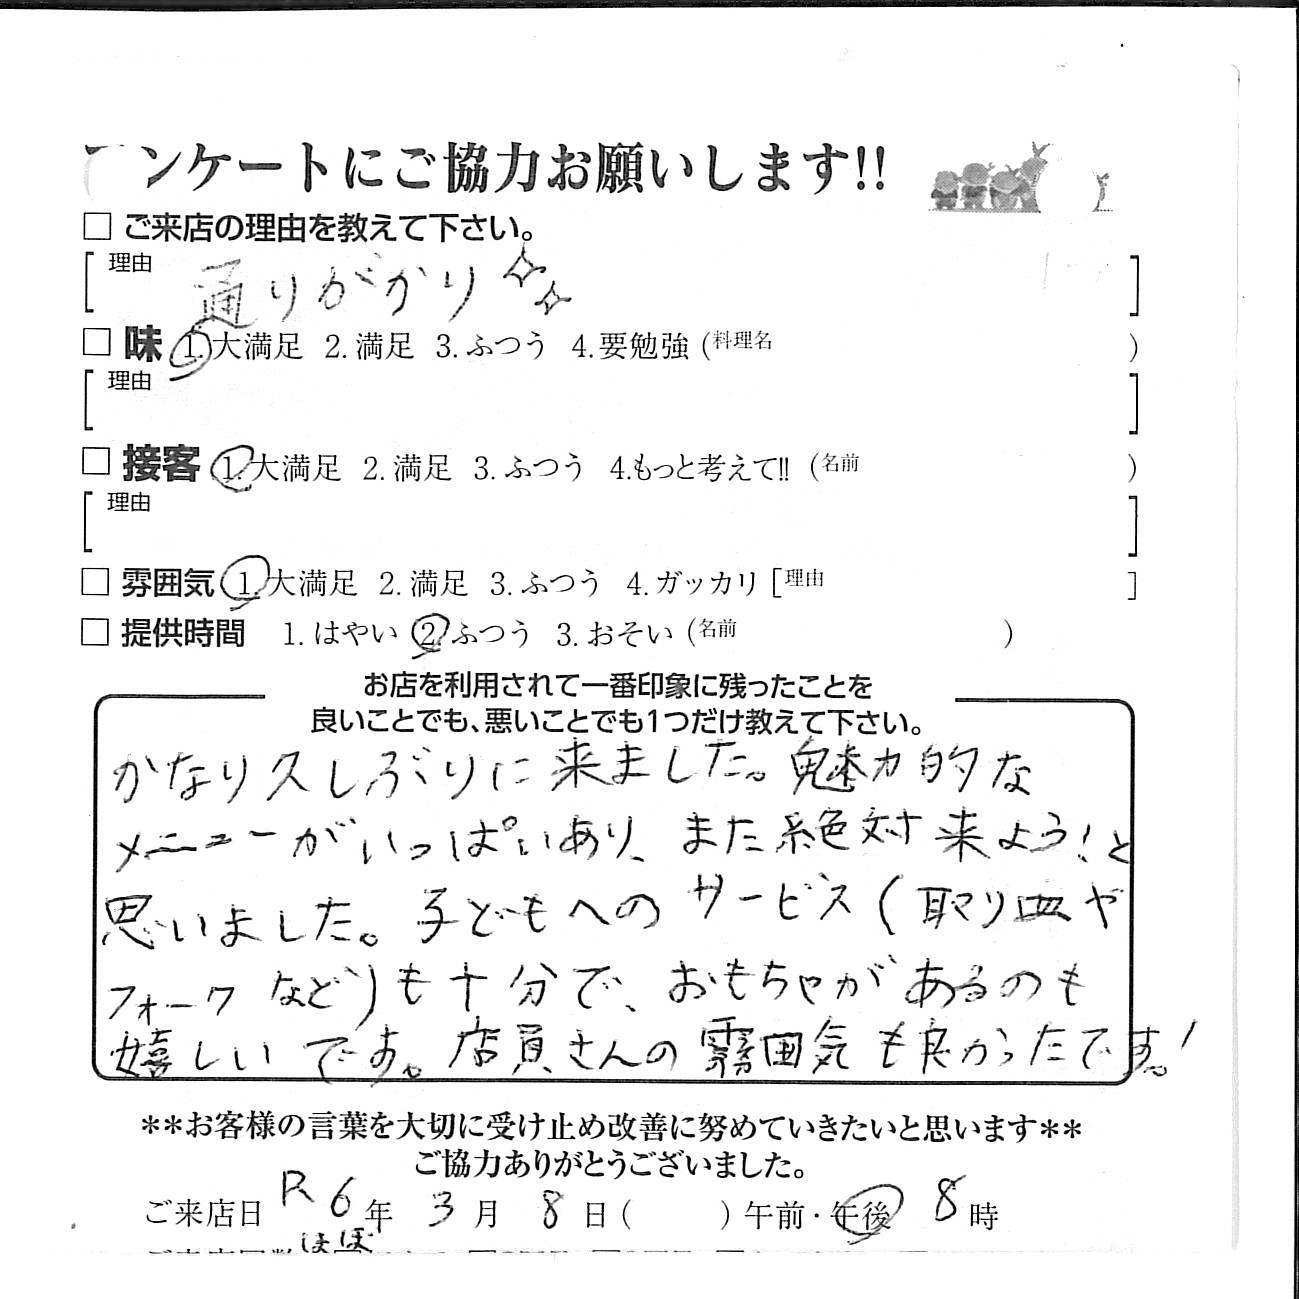 ンケートにご協力お願いします!!
□ ご来店の理由を教えて下さい。
[理由 通りがかり ]
□ 味 1.大満足 2.満足 3.ふつう 4.要勉強 (料理名 )
[理由 ]
□ 接客 1.大満足 2.満足 3.ふつう 4.もっと考えて!! (名前 )
[理由 ]
□ 雰囲気 1.大満足 2.満足 3.ふつう 4.ガッカリ [理由 ]
□ 提供時間 1.はやい 2.ふつう 3.おそい (名前 )
お店を利用されて一番印象に残ったことを
良いことでも、悪いことでも1つだけ教えて下さい。
かなり久しぶりに来ました。魅力的な
メニューがいっぱいあり、また絶対来よう!と
思いました。子どもへのサービス(取り皿や
フォークなど)も十分で、おもちゃがあるのも
嬉しいです。店員さんの雰囲気も良かったです!
**お客様の言葉を大切に受け止め改善に努めていきたいと思います**
ご協力ありがとうございました。
ご来店日 R6年 3月 8日( )午前・午後 8時
ほぼ